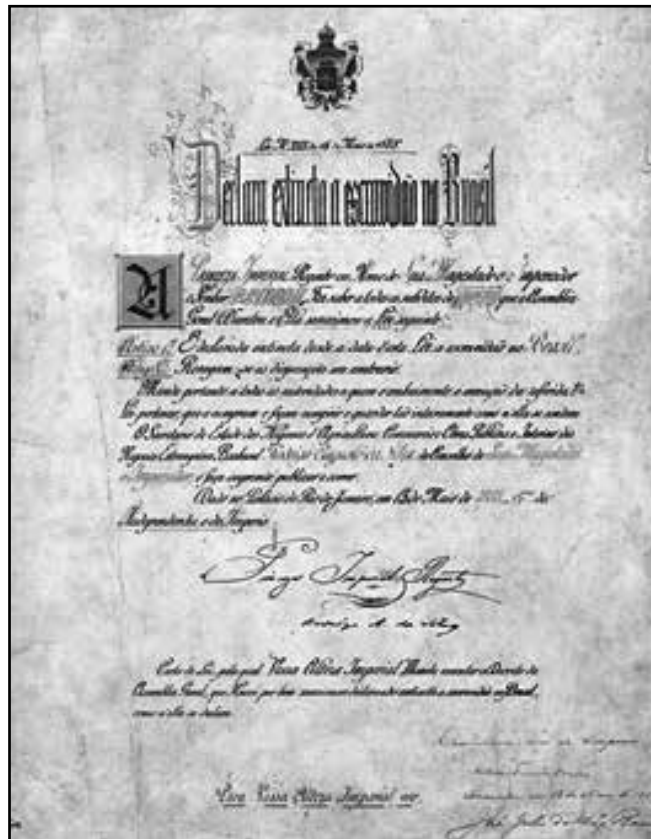 Declara extincta a escravidão no Brasil
A Princeza Imperial Regente em Nome de Sua Magestade o Imperador
o Senhor Faz saber a todos os subditos do que a Assembléa
Geral Decretou e Ella sanccionou a Lei seguinte
Artigo 1º É declarada extincta desde a data d'esta Lei a escravidão no Brazil
Revogam-se as disposições em contrario
Manda portanto a todas as autoridades a quem o conhecimento e execução da referida
Lei pertencer, que a cumpram e façam cumprir e guardar tão inteiramente como n'ella se contém
O Secretario de Estado dos Negocios d'Agricultura Commercio e Obras Publicas e Interino dos
Negocios Estrangeiros, Bacharel do Conselho de Sua Magestade
o Imperador, o faça imprimir publicar e correr
Dado no Palacio do Rio de Janeiro, em 13 de Maio de
Independencia e do Imperio
Princeza Imperial Regente
Carta de Lei, pela qual Vossa Alteza Imperial Manda executar o Decreto da
Assembléa Geral, que Houve por bem sanccionar declarando extincta a escravidão no Brazil,
como n'ella se declara
Para Vossa Alteza Imperial ver